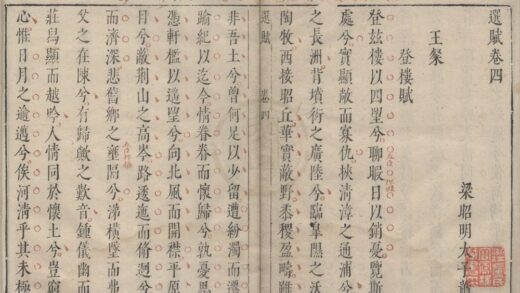 選賦卷四
梁昭明太子蕭
王粲
登樓賦
登茲樓以四望兮聊暇日以銷憂覽斯
處兮實顯敞而寡仇挾清漳之通浦兮
之長洲背墳衍之廣陸兮臨皐隰之沃
陶牧西接昭丘華實蔽野黍稷盈疇雖
選賦 卷四
非吾土兮曾何足以少留遭紛濁而遷
踰紀以迄今情眷眷而懷歸兮孰憂思
憑軒檻以遙望兮向北風而開襟平原
目兮蔽荊山之高岑路逶迤而脩迥兮
而濟深悲舊鄉之壅隔兮涕橫墜而弗
父之在陳兮有歸歟之歎音鍾儀幽而
莊舄顯而越吟人情同於懷土兮豈窮
心惟日月之逾邁兮俟河清乎其未極